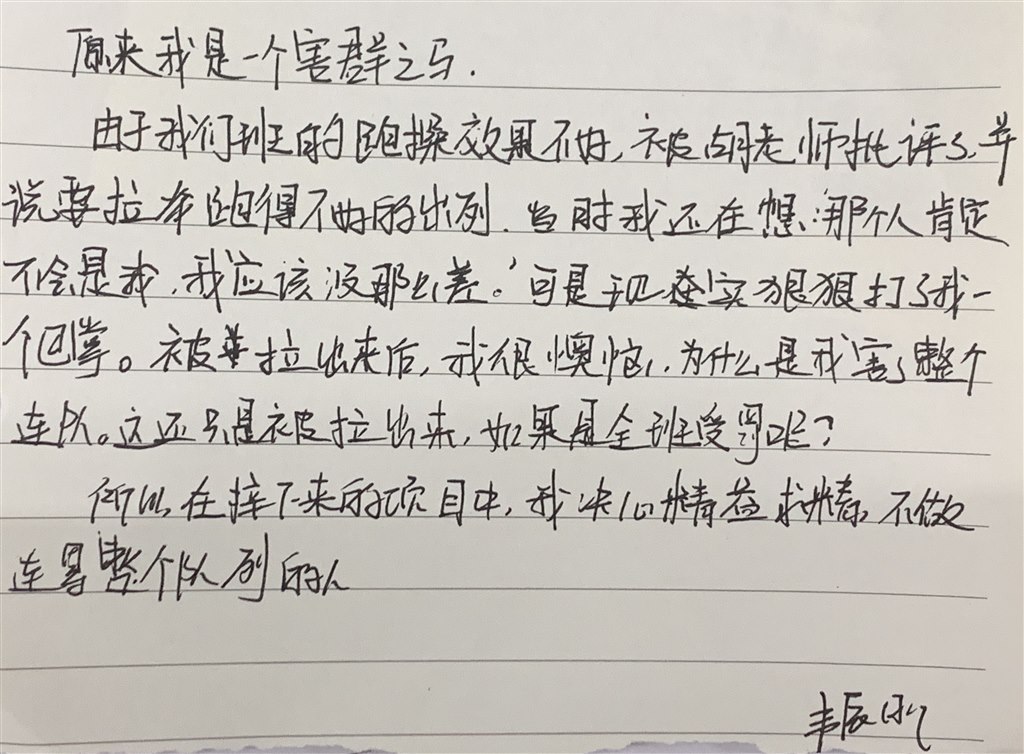 原来我是一个害群之马.
由于我们班的跑操效果不好,被胡老师批评了,并
说要拉本跑得不好的出列.当时我还在想:那个人肯定
不会是我,我应该没那么差。'可是现实狠狠打了我一
个回掌。被拉出来后,我很懊恼,为什么是我害了整个
连队。这还只是被拉出来,如果是全班受罚呢?
所以在接下来的项目中,我决心精益求精,不做
连累整个队列的人